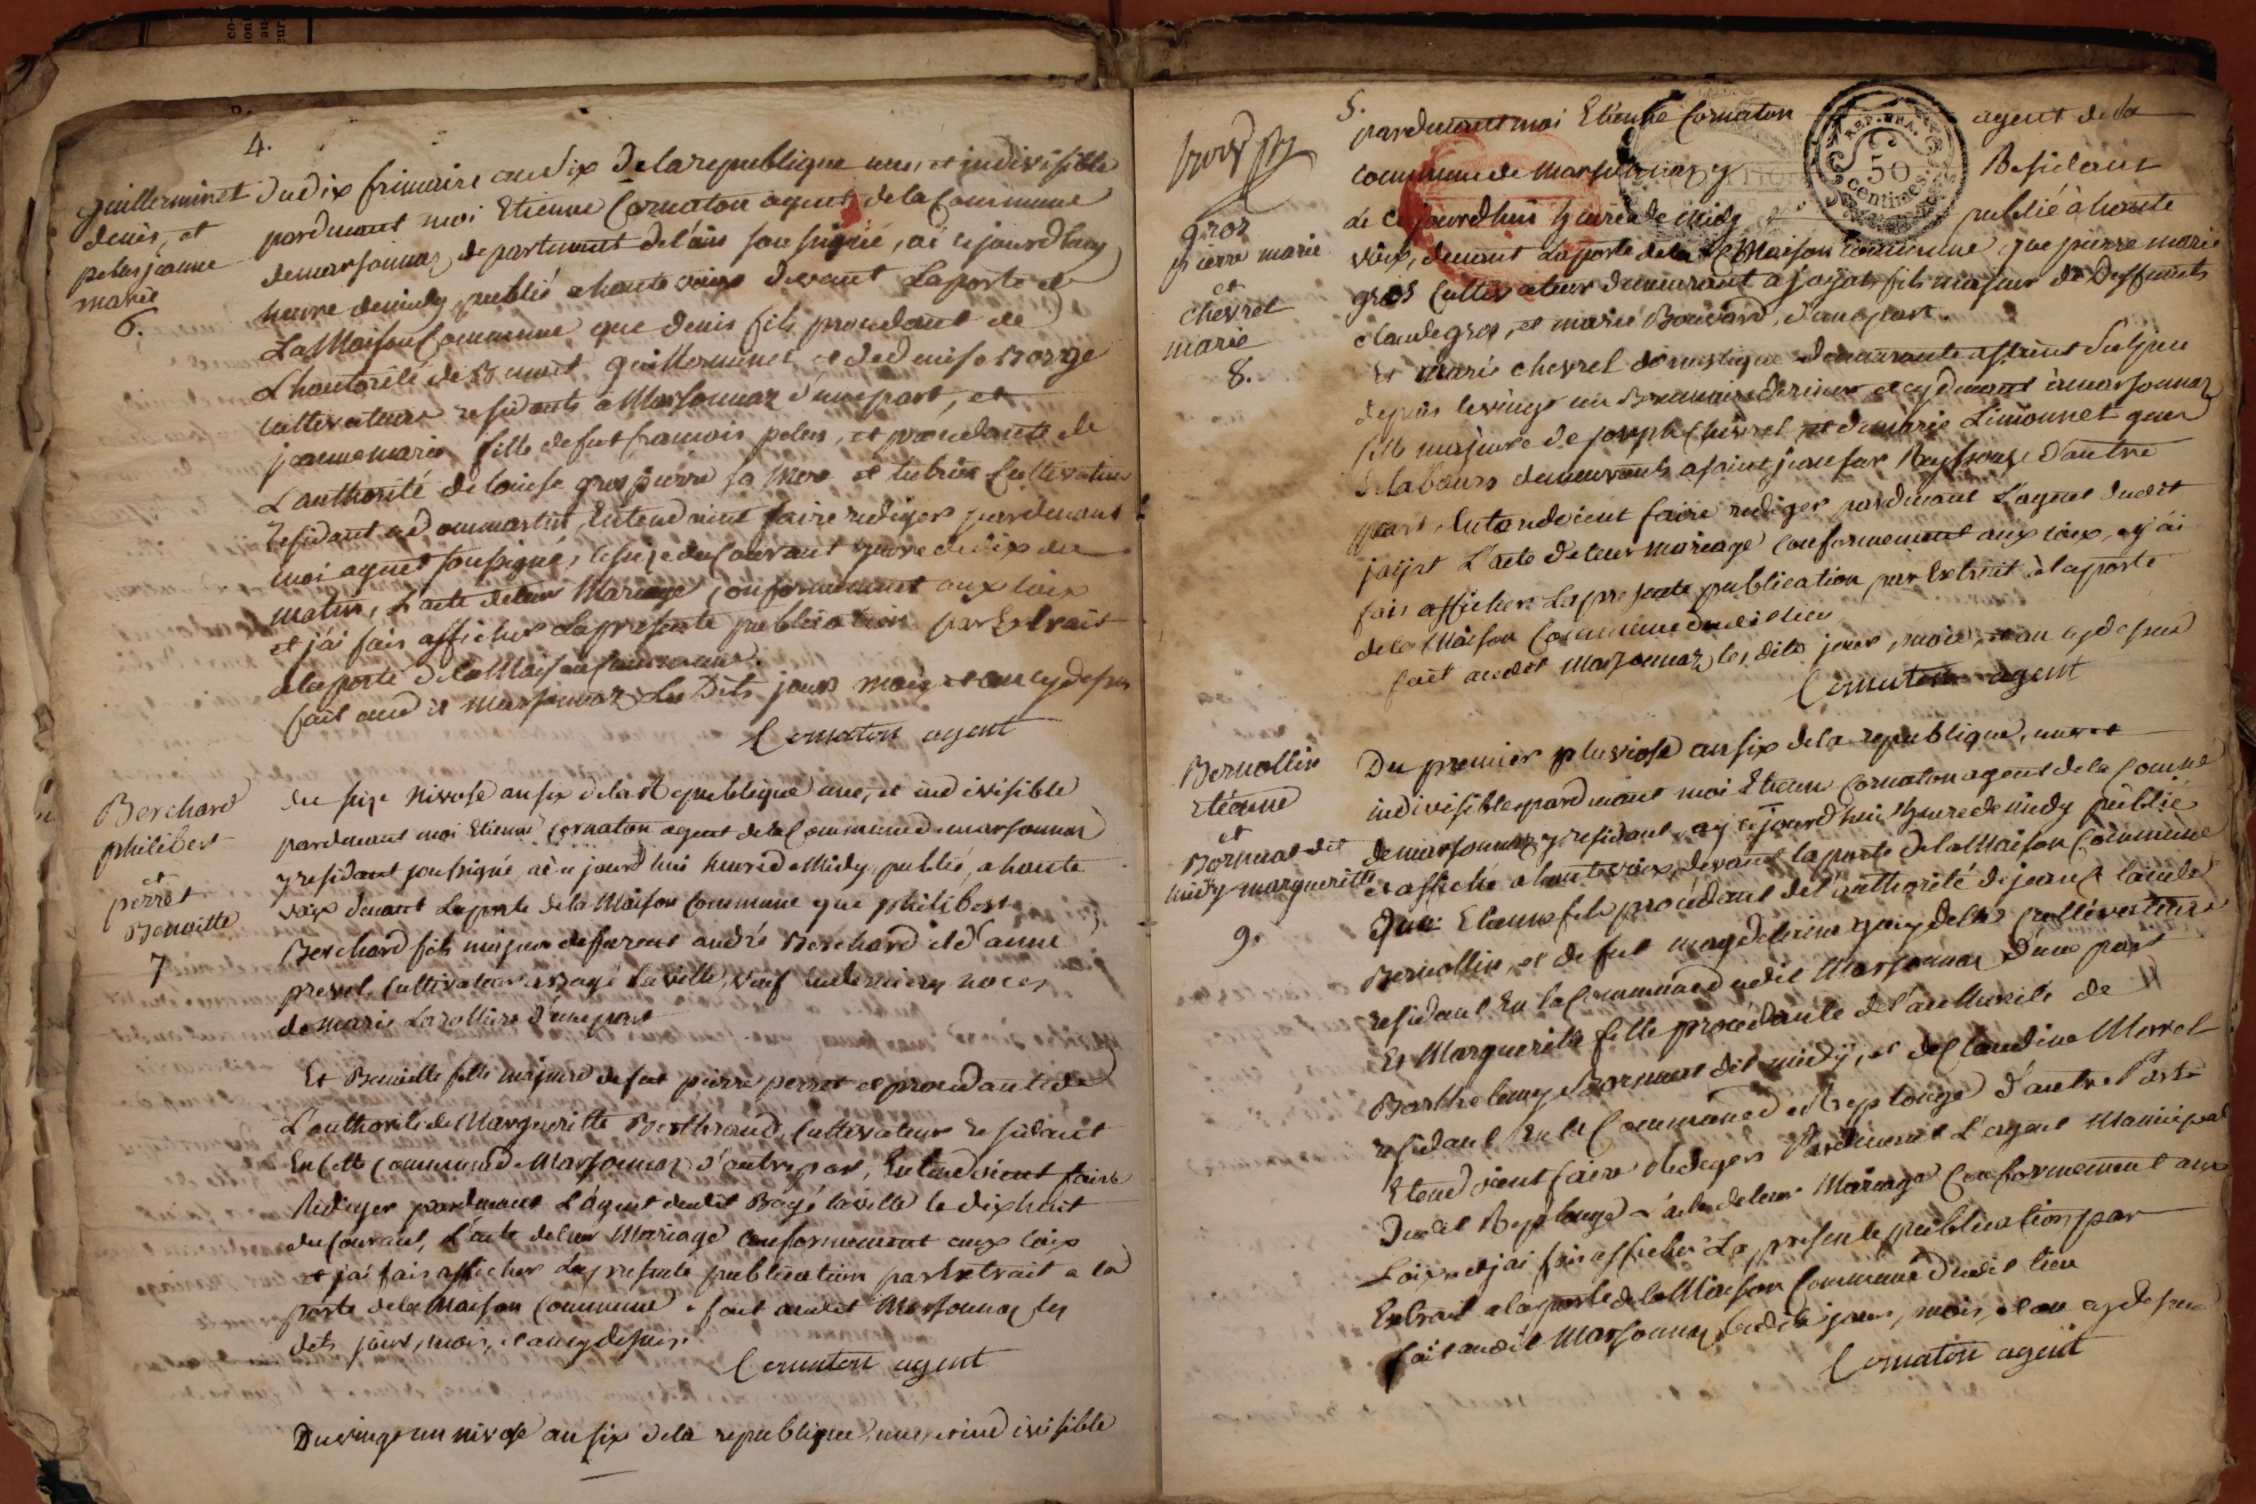 4.
guillerminet
denis, et
pelus jeanne
marie
6.
du dix frimaire an six de la republique une, et indivisible
pardevant moi Etienne Cornaton agent de la Commune
de marsonnaz, departement de l'ain soussigné, ai ce jourdhuy
heure de midy publié a haute voix devant la porte de
La Maison Commune que denis fils procedant de
L'hautorité de Benoit guillerminet et de denise Borge
cultivateurs residants a Marsonnaz d'une part, et
jeanne marie fille de fut francois pelus, et procedante de
L'authorité de louise gros pierre sa mere et tutrice Cultivatrice
Residant a dommartin, Entendoient faire rediger pardevant
moi agent soussigné, le seize du Courant heure de dix du
matin, L'acte de leur Mariage conformement aux loix
et j'ai fais afficher la presente publication par Extrait
a la porte de la Maison Commune.
fait aud it Marsonnaz Les Dits jours mois et an cy dessus
Cornaton agent
Berchard
philibert
et
perret
Benoitte
7
du seize Nivose an six de la Republique une, et indivisible
pardevant moi Etienne Cornaton agent de la Commune de marsonnaz
y residant soussigné ai ce jourd'hui heure de Midy publié, a haute
voix devant la porte de la Maison Commune que philibert
Berchard fils majeur de furent andré Berchard et d'anne
prevel, Cultivateur a Bagé la ville, veuf en dernieres noces
de marie Larolliere d'une part
Et Benoitte fille majeure de fut pierre perret et procedante de
L'authorité de Margueritte Berthraud, Cultivateur residant
En cette Commune de Marsonnaz d'autre part, Entendoient faire
Rediger pardevant L'agent dudit Bagé laville le dix huit
du Courant, L'acte de leur Mariage conformement aux loix
et j'ai fais afficher la presente publication par Extrait a la
porte de la Maison Commune. fait audit Marsonnaz les
dits jours, mois, et an cy dessus.
Cornaton agent
Du vingt un nivose an six de la republique, une, et indivisible
5.
gros
pierre marie
et
chevrel
marie
8.
pardevant moi Etienne Cornaton agent de la
commune de Marsonnaz y Residant
ai ce jourdhui heure de midy publié à haute
voix, devant la porte de la Maison Commune que pierre marie
gros Cultivateur demeurant a jayat fils majeur de Deffunts
claude gros, et marie Bouvard, d'une part.
Et marie chevrel domestique demeurante a saint Sulpice
depuis le vingt un Brumaire dernier et cy devant à marsonnaz
fille majeure de joseph Chevrel, et de marie Limonnet gens
de labours demeurants a saint jean sur Reyssouze D'autre
part, Entendoient faire rediger pardevant L'agent dudit
jayat L'acte de leur mariage conformement aux loix, et j'ai
fais afficher la presente publication par Extrait à la porte
de la Maison Commune dudit lieu
fait audit Marsonnaz les dits jour, mois, et an cy dessus
Cornaton agent
Bernollin
Etienne
et
Bornuat dit
midy margueritte
9.
Du premier pluviose an six de la republique, une et
indivisible, pardevant moi Etienne Cornaton agent de la Comune
de marsonnaz y residant, ay ce jourd'hui heure de midy publié
et affiché a haute voix, devant la porte de la Maison Commune
Que Etienne fils procedant de l'authorité de jean claude
Bernollin, et de fut magdelaine Cultivateurs
residant En la Commune dudit Marsonnaz D'une part
Et Marguerite fille procedante de l'authorité de
Barthelemy Bornuat dit midy, et de Claudine Morel
residant En la Commune de Replonge d'autre Part
Etendoient faire Rediger Pardevant L'agent Municipal
Dudit Replonge L'acte de leur Mariage Conformement aux
Loix, et j'ai fais afficher La presente publication par
Extrait a la porte de la Maison Commune dudit lieu
fait audit Marsonnaz les dits jour, mois, et an cy dessus
Cornaton agent
REP. FRA.
50
centimes